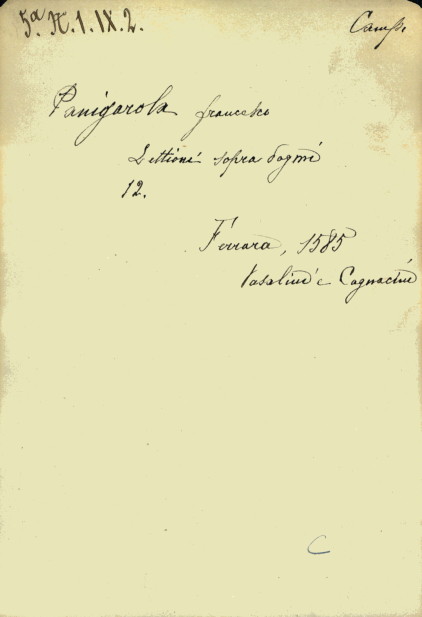 5ª. N. 1. IX. 2.
Camp.
Panigarola francesco
Lettioni sopra dogmi
12.
Ferrara, 1585
Vasalini e Cagnacini
C